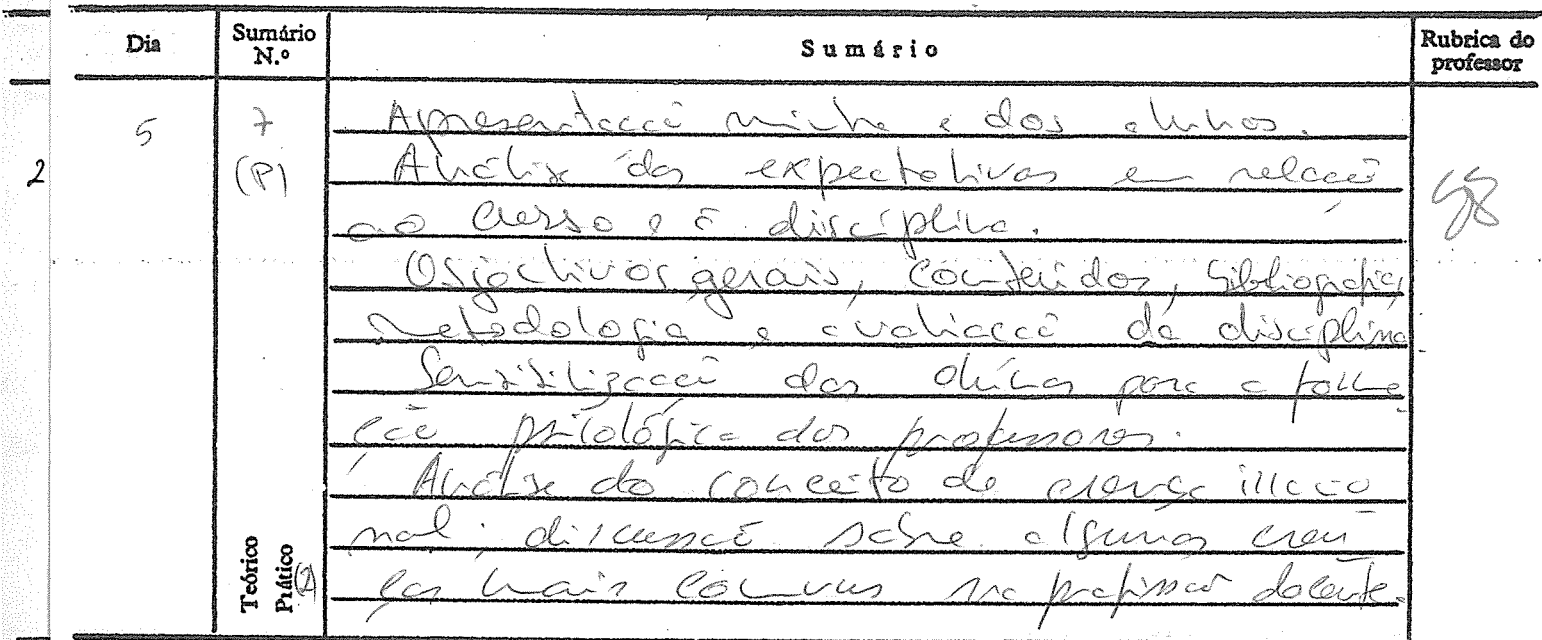 Dia Sumário N.º Sumário Rubrica do professor
2 5 7 Apresentação minha e dos alunos.
(P) Análise das expectativas em relação
ao curso e à disciplina.
Objectivos gerais, conteúdos, bibliografia,
metodologia e avaliação da disciplina
Sensibilização dos alunos para a forma
ção psicológica dos professores.
Análise do conceito de crença irracio
nal; discussão sobre algumas cren
ças mais comuns na profissão docente.
Teórico
Prático (2)